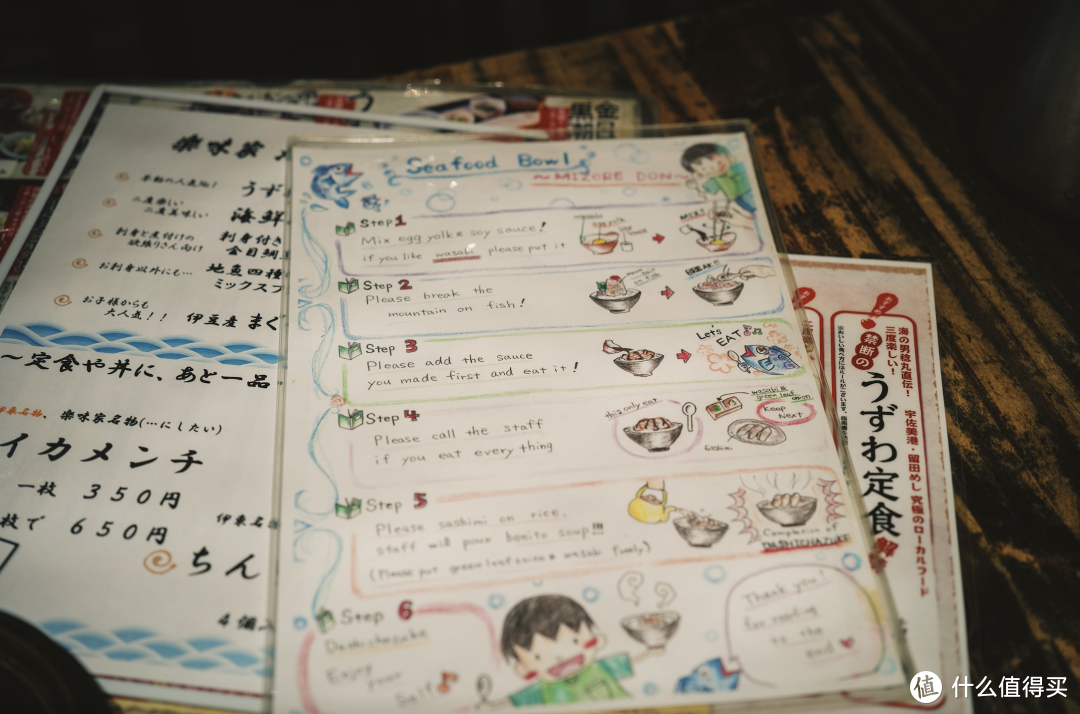 Seafood Bowl
~MIZORE DON~
Step 1
Mix egg yolk & soy sauce!
if you like wasabi please put it
MIX!
Step 2
Please break the
mountain on fish!
BREAK!!
Step 3
Please add the sauce
you made first and eat it!
Let's
EAT
Step 4
Please call the staff
if you eat every thing
this only eat
wasabi &
green leaf onion
Keep
Next
Sashimi
Step 5
Please sashimi on rice.
staff will pour bonito soup!!!
(Please put green leaf onion & wasabi freely)
Completion of
DASHICHAZUKE
Step 6
Enjoy
your
self
Thank you!
for reading
to the
end
楽味家
不動の人気地!
うず
二度楽しい
二度美味しい
海鮮
刺身と煮付けの
欲張りさん向け
刺身付き
金目鯛
お刺身以外にも…
地魚四種
ミックスフ
お子様からも
大人気!!
伊豆産 まぐ
~定食や丼に、あと一品
伊東名物、楽味家名物(…にしたい)
イカメンチ
一枚 350円
枚で 650円
伊東名
ちん
4個
金目
黒
海の男稔丸直伝!
三度楽しい!
宇佐美港・留田めし 究極のローカルフード
禁断の
うずわ定食
値 什么值得买